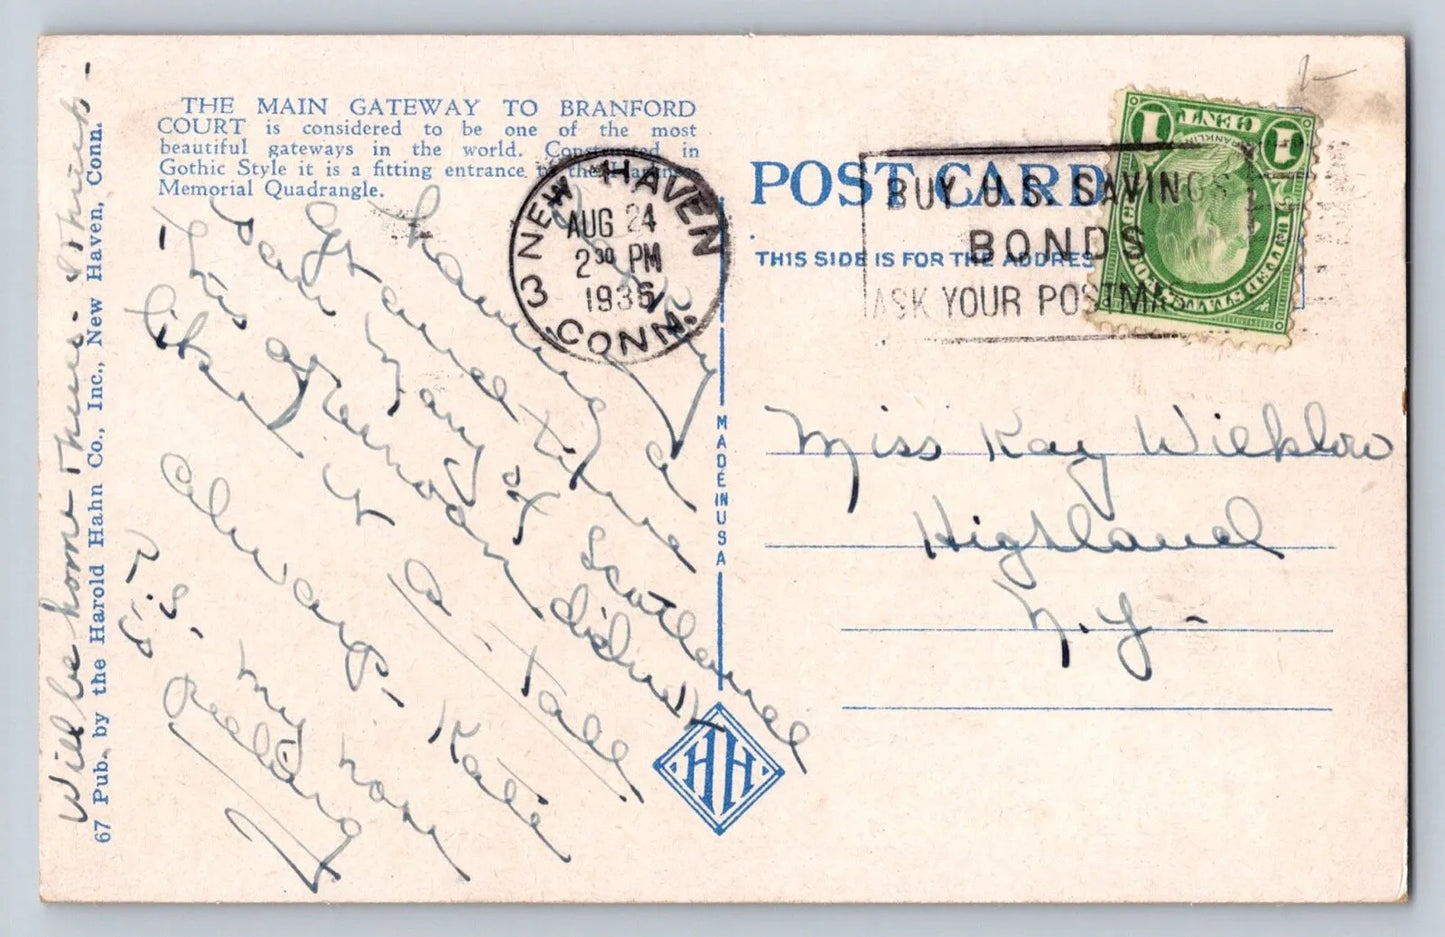 THE MAIN GATEWAY TO BRANFORD
COURT is considered to be one of the most
beautiful gateways in the world. Constructed in
Gothic Style it is a fitting entrance to the Harkness
Memorial Quadrangle.
Having a
grand time
Saw many of Scotland
this afternoon
like it a-tall
always-
Katie
P.S. my nose
is peeling
Will be home Thurs. I think-
67 Pub. by the Harold Hahn Co., Inc., New Haven, Conn.
NEW HAVEN
AUG 24
2 30 PM
1936
3 CONN.
MADE IN USA
HH
POST CARD
THIS SIDE IS FOR THE ADDRES
BUY U.S. SAVINGS
BONDS
ASK YOUR POSTMA
1 CENT 1
FRANKLIN
Miss Kay Wilklow
Highland
N.Y-